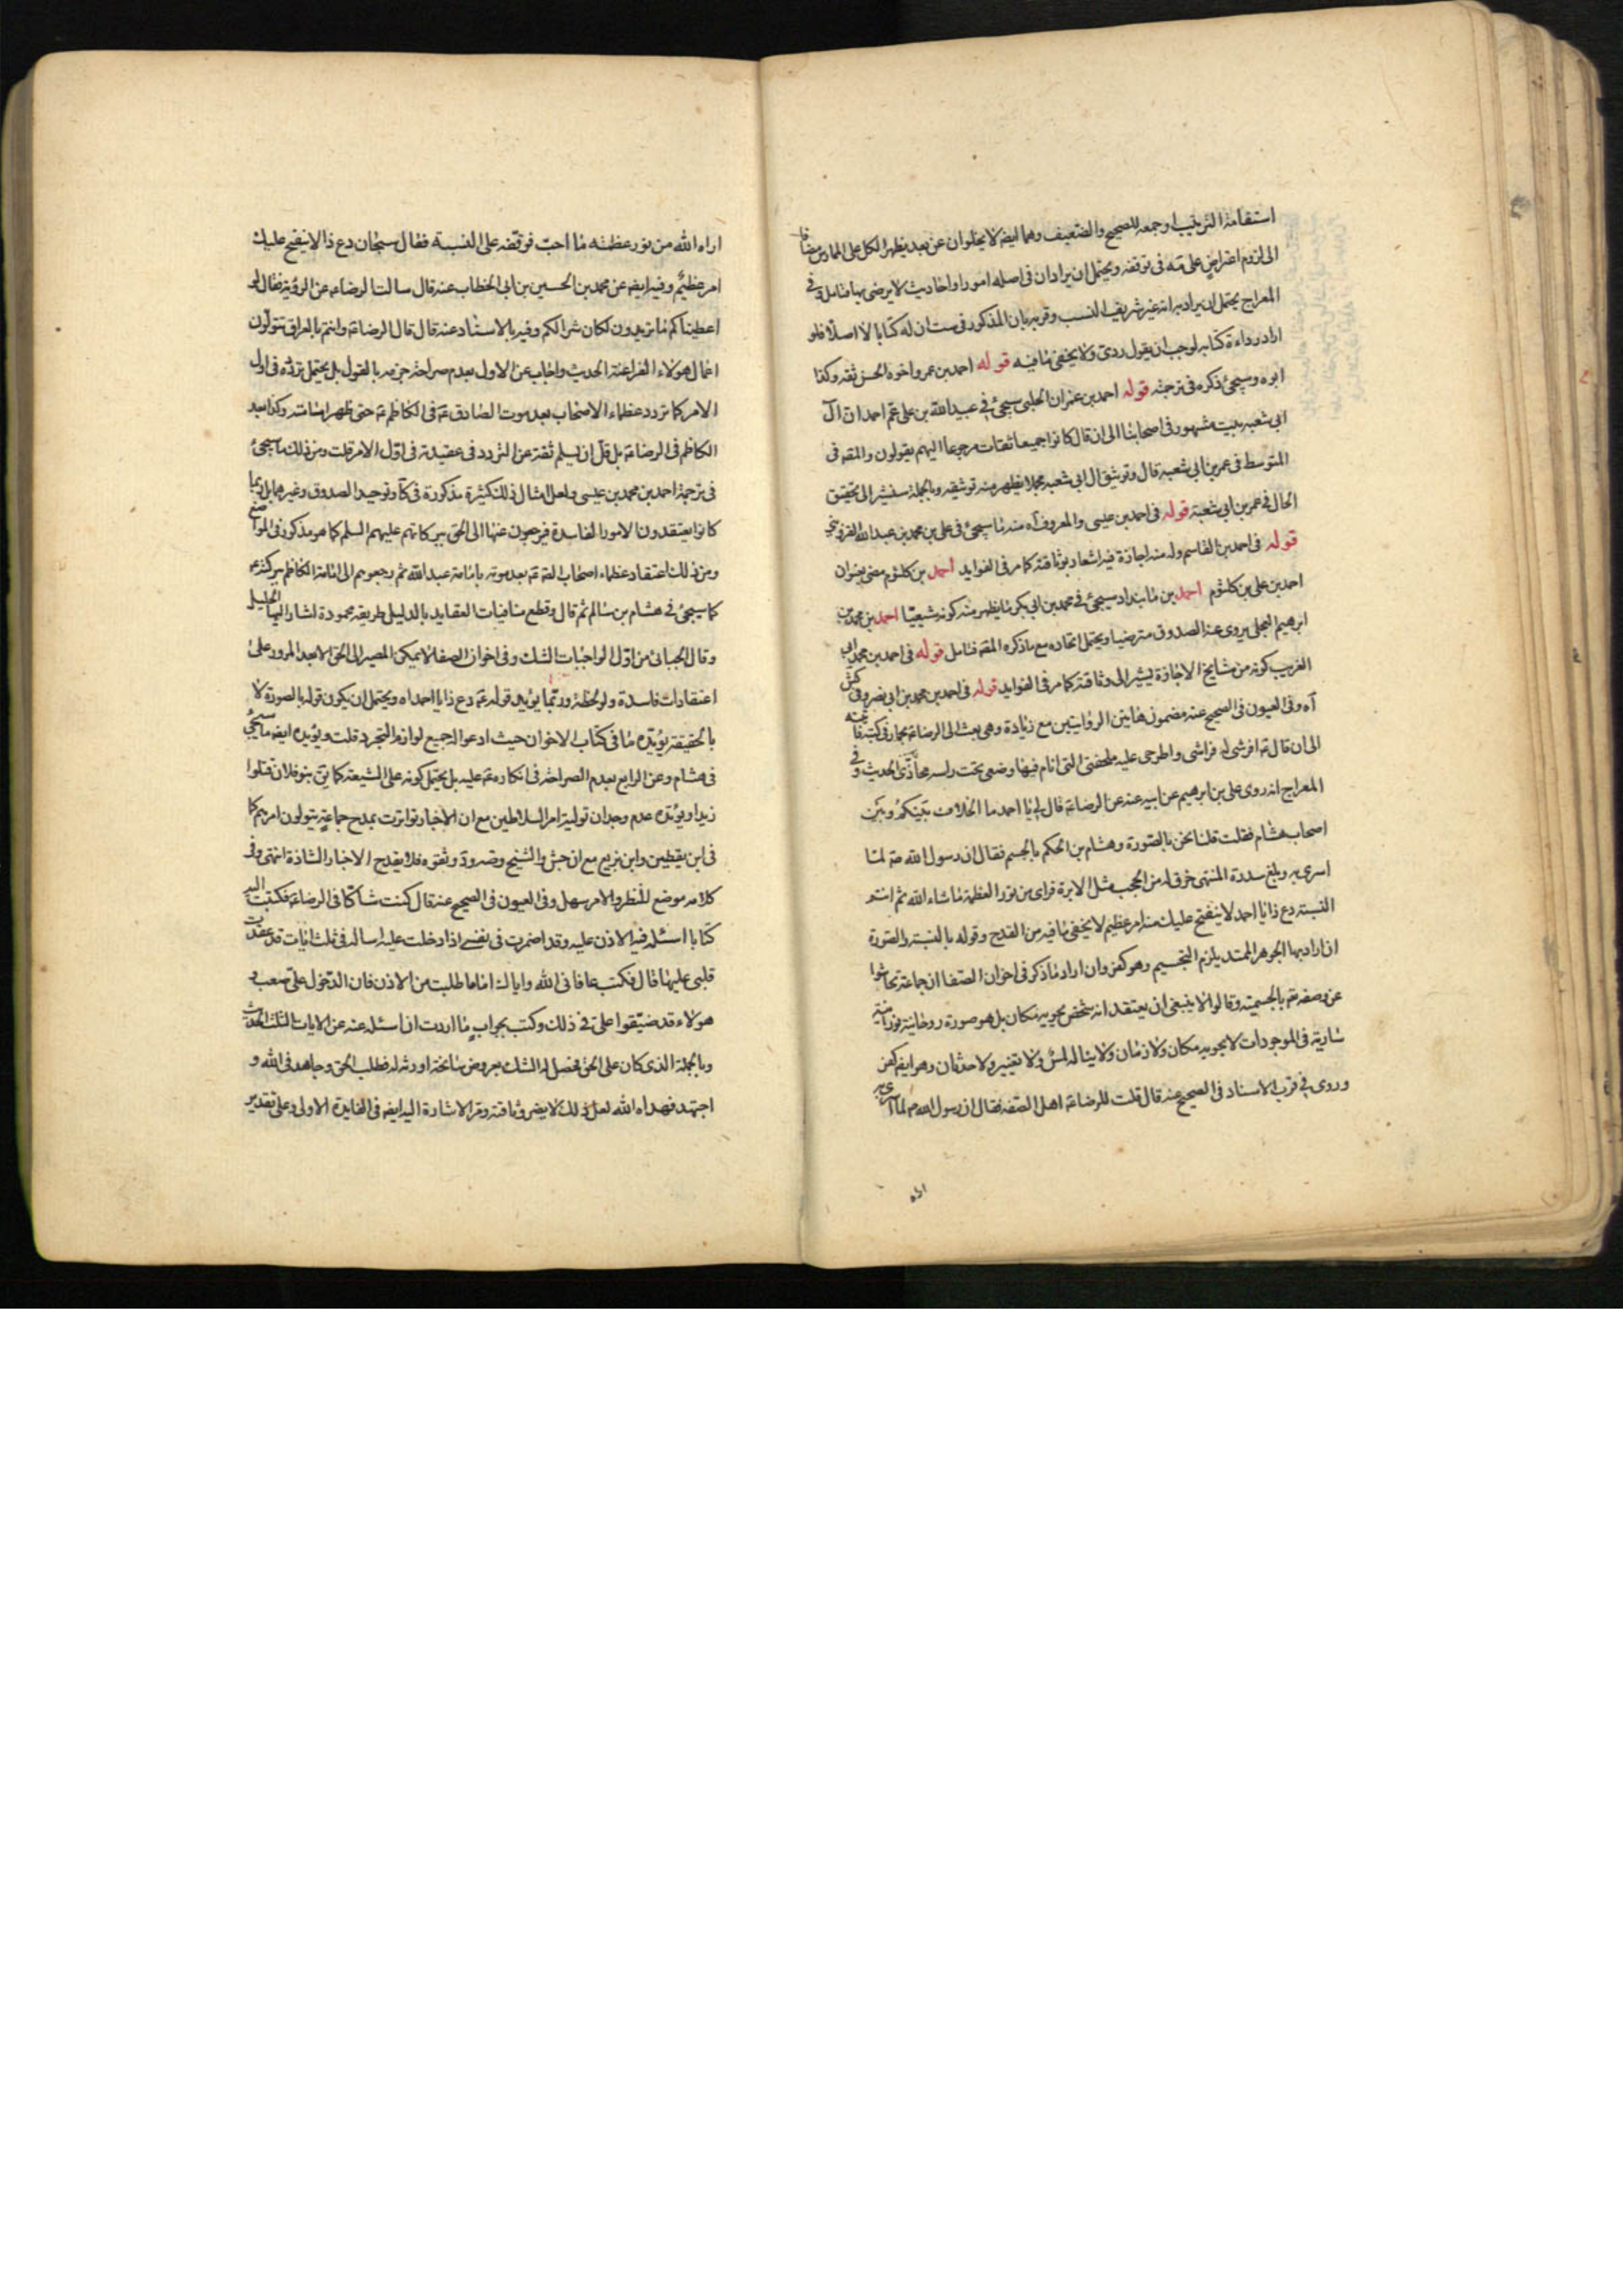 استقامة الترتيب او جمعه للصحيح والضعيف وهما ايضا لا يخلوان عن بعد يظهر الكل على الممارس مضافا
الى لزوم اعتراض على مه فى توقفه ويحتمل ان يراد ان فى اصله امورا واحاديث لا يرضى بها فتامل وفى
المعراج يحتمل ان يراد به انه غير شريف النسب وقربه بان المذكور فى ست ان له كتابا لا اصلا فلو
اراد رداءة كتابه لوجب ان يقول ردى ولا يخفى ما فيه قوله احمد بن عمر واخوه الحسن ثقه وكذا
ابوه وسيجئ ذكره فى ترجمته قوله احمد بن عمران الحلبى سيجئ فى عبيد الله بن على عم احمد ان آل
ابى شعبه بيت مشهور فى اصحابنا الى ان قال كانوا جميعا ثقات مرجوعا اليهم يقولون والمقه فى
المتوسط فى عمر بن ابى شعبه قال وتوثيق ال ابى شعبه مجملا يظهر منه توثيقه وبالجملة سنشير الى تحقيق
الحال فى عمر بن ابى شعبة قوله فى احمد بن عيسى والمعروف آه منه ما سيجئ فى على بن محمد بن عبد الله القزوينى
قوله فى احمد بن القاسم وله منه اجازة فيه اشعار بوثاقته كما مر فى الفوايد احمد بن كلثوم مضى بعنوان
احمد بن على بن كلثوم احمد بن مابنداد سيجئ فى محمد بن ابى بكر ما يظهر منه كونه شيعيا احمد بن محمد بن
ابرهيم العجلى يروى عنه الصدوق مترضيا ويحتمل اتحاده مع ما ذكره المقه فتامل قوله فى احمد بن محمد ابى
الغريب كونه من مشايخ الاجازة يشير الى وثاقته كما مر فى الفوايد قوله فى احمد بن محمد بن ابى نصر وفى كش
آه وفى العيون فى الصحيح عنه مضمون هاتين الروايتين مع زيادة وهى بعث الى الرضا ع بحمار فركبته فاتيته
الى ان قال ع افرشى له فراشى واطرحى عليه ملحفتى التى انام فيها وضعى تحت راسه مخادتى الحديث وفى
المعراج انه روى على بن ابرهيم عن ابيه عنه عن الرضا ع قال لى يا احمد ما الخلاف بينكم وبين
اصحاب هشام فقلت قلنا نحن بالصورة وهشام بن الحكم بالجسم فقال ان رسول الله ص لما
اسرى به وبلغ سدرة المنتهى خرق له من الحجب مثل الابرة فراى من نور العظمة ما شاء الله ثم انتم
النسبته دع ذا يا احمد لا ينفتح عليك منه امر عظيم لا يخفى ما فيه من القدح وقوله بالنسبته والصورة
ان اراد بها الجوهر الممتد يلزم التجسيم وهو كفر وان اراد ما ذكر فى اخوان الصفا ان جماعة تحاشوا
عن وصفه تع بالجسمية وقالوا لا ينبغى ان يعتقد انه شخص يحويه مكان بل هو صورة روحانية نورانية
سارية فى الموجودات لا يحويه مكان ولا زمان ولا يناله لمس ولا تغيير ولا حدثان وهو ايضا كفر
وروى فى قرب الاسناد فى الصحيح عنه قال قلت للرضا ع اهل الصفة فقال ان رسول الله ص لما اسرى به
اراه
اراه الله من نور عظمته ما احب فوقفه على النسبة فقال سبحان دع ذا لا ينفتح عليك
امر عظيم وفيه ايضا عن محمد بن الحسين بن ابى الخطاب عنه قال سالت الرضا ع عن الرؤية فقال لو
اعطيناكم ما تريدون لكان شرا لكم وفيه بالاسناد عنه قال قال الرضا ع وانتم بالعراق تتولون
اعمال هؤلاء الفراعنة الحديث واجاب عن الاول بعدم صراحة جزمه بالقول بل يحتمل تردده فى اول
الامر كما تردد عظماء الاصحاب بعد موت الصادق ع فى الكاظم ع حتى ظهر امامته وكذا بعد
الكاظم فى الرضا ع بل قل ان يسلم ثقة عن التردد فى عقيدة فى اول الامر قلت ومن ذلك ما سيجئ
فى ترجمة احمد بن محمد بن عيسى ولعل امثال ذلك كثيرة مذكورة فى كا وتوحيد الصدوق وغيرهما بل ربما
كانوا يعتقدون الامور الفاسدة فيرجعون عنها الى الحق ببركاتهم عليهم السلم كما هو مذكور فى المواضع
ومن ذلك اعتقاد عظماء اصحاب الصه ع بعد موته بامامة عبد الله ثم رجعوهم الى امامة الكاظم مع كثرتهم
كما سيجئ فى هشام بن سالم ثم قال وقطع منافيات العقايد بالدليل طريقه محمودة اشار اليها الخليل
وقال الجبائى من اول الواجبات الشك وفى اخوان الصفا لا يمكن المصير الى الحق الا بعد المرور على
اعتقادات فاسدة ولو لحظة وربما يؤيد قوله ع دع ذا يا احمد اه ويحتمل ان يكون قوله بالصورة لا
بالحقيقة يؤيده ما فى كتاب الاخوان حيث ادعوا لجميع لوازم التجرد قلت ويؤيده ايضا ما سيجئ
فى هشام وعن الرابع بعدم الصراحة فى انكاره ع عليه بل يحتمل كونه على الشيعة كما يق بنو فلان قتلوا
زيدا ويؤيده عدم وجدان توليته امر السلاطين مع ان الاخبار تواترت بمدح جماعة يتولون امرهم كما
فى ابن يقطين وابن بزيع مع ان جش والشيخ وضروه وثقوه فلا يقدح الاخبار الشاذة انتهى وفى
كلامه موضع للنظر والامر سهل وفى العيون فى الصحيح عنه قال كنت شاكا فى الرضا ع فكتبت اليه
كتابا اسئله فيه الاذن عليه وقد اضمرت فى نفسى اذا دخلت عليه اساله فى ثلث ايات قد عقدت
قلبى عليها قال فكتب عافانى الله واياك اما ما طلبت من الاذن فان الدخول على صعب و
هؤلاء قد ضيقوا على فى ذلك وكتب بجواب ما اردت ان اسئله عنه عن الايات الثلث الحديث
وبالجملة الذى كان على الحق فحصل له الشك بعروض سانحة اورثه له فطلب الحق وجاهد فى الله و
اجتهد فهداه الله لعل ذلك لا يضر وثاقته ومر الاشارة اليه ايضا فى الفايدة الاولى وعلى تقدير